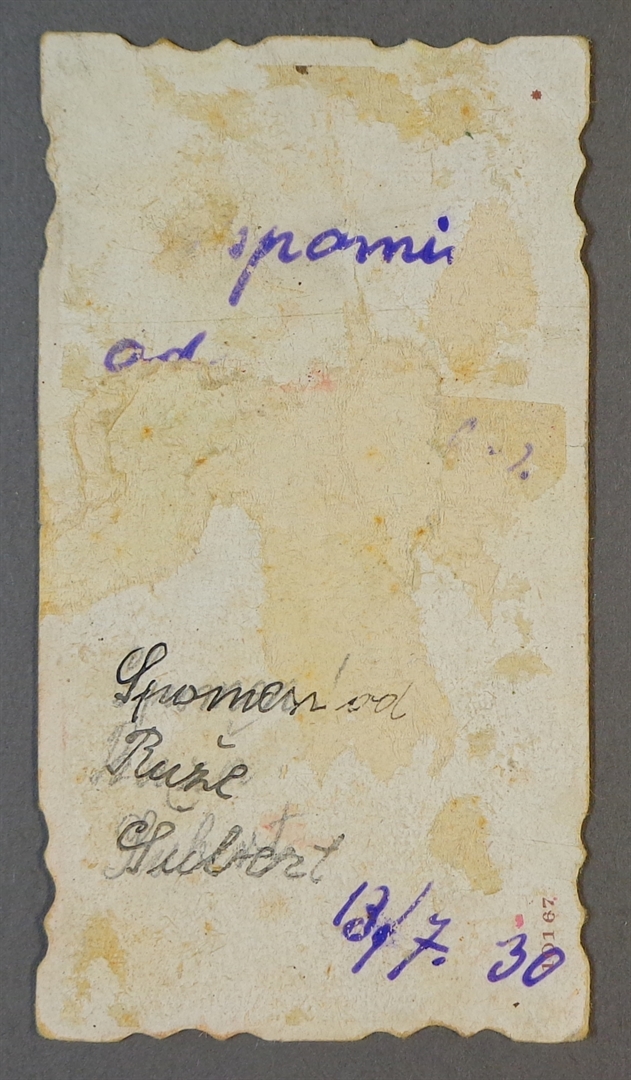 spomi
od
Spomen od
Ruže
13/7. 30
0167